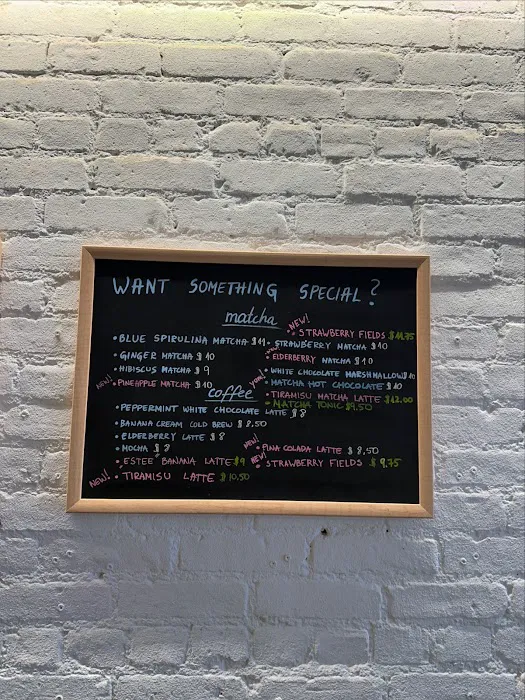 WANT SOMETHING SPECIAL?
matcha
• BLUE SPIRULINA MATCHA $11
• GINGER MATCHA $10
• HIBISCUS MATCHA $9
NEW! • PINEAPPLE MATCHA $10
NEW! • STRAWBERRY FIELDS $11.75
• STRAWBERRY MATCHA $10
• ELDERBERRY MATCHA $10
• WHITE CHOCOLATE MARSHMALLOW $10
• MATCHA HOT CHOCOLATE $10
• TIRAMISU MATCHA LATTE $12.00
• MATCHA TONIC $9.50
coffee
• PEPPERMINT WHITE CHOCOLATE LATTE $8
• BANANA CREAM COLD BREW $8,50
• ELDERBERRY LATTE $8
• MOCHA $8
• ESTEE BANANA LATTE $9
NEW! • TIRAMISU LATTE $10,50
NEW! • PINA COLADA LATTE $8,50
NEW! • STRAWBERRY FIELDS $9.75